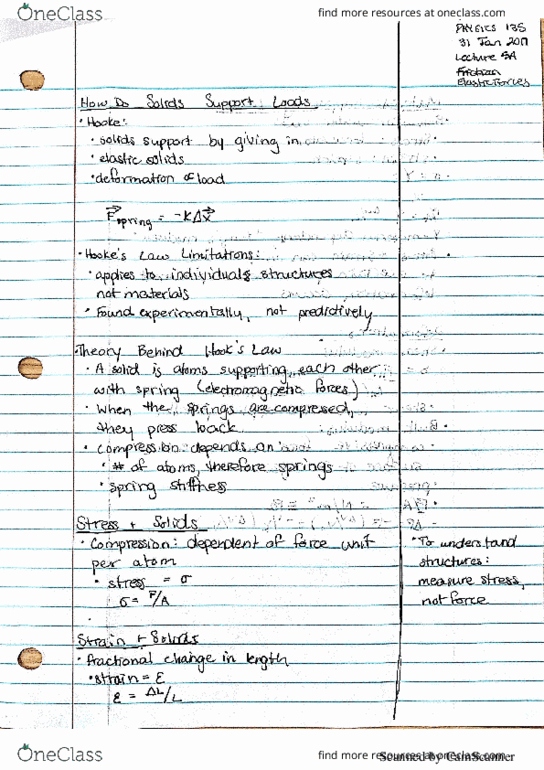 OneClass
find more resources at oneclass.com
PHYSICS 135
31 Jan 2017
Lecture 9A
Friction
Elastic Forces
How Do Solids Support Loads
• Hooke:
• solids support by giving in
• elastic solids
• deformation ∝ load
F⃗spring = -kΔx⃗
• Hooke's Law Limitations:
• applies to individual structures
not materials
• Found experimentally, not predictively
• Theory Behind Hook's Law
• A solid is atoms supporting each other
with spring (electromagnetic forces)
• When the springs are compressed,
they press back
• Compression depends on
• # of atoms, therefore springs
• spring stiffness
Stress + Solids
• Compression: dependent of force unit
per atom
• stress = σ
σ = F/A
• To understand
structures:
measure stress,
not force
Strain + Solids
• fractional change in length
• strain = ε
ε = ΔL/L
OneClass
find more resources at oneclass.com
Scanned by CamScanner